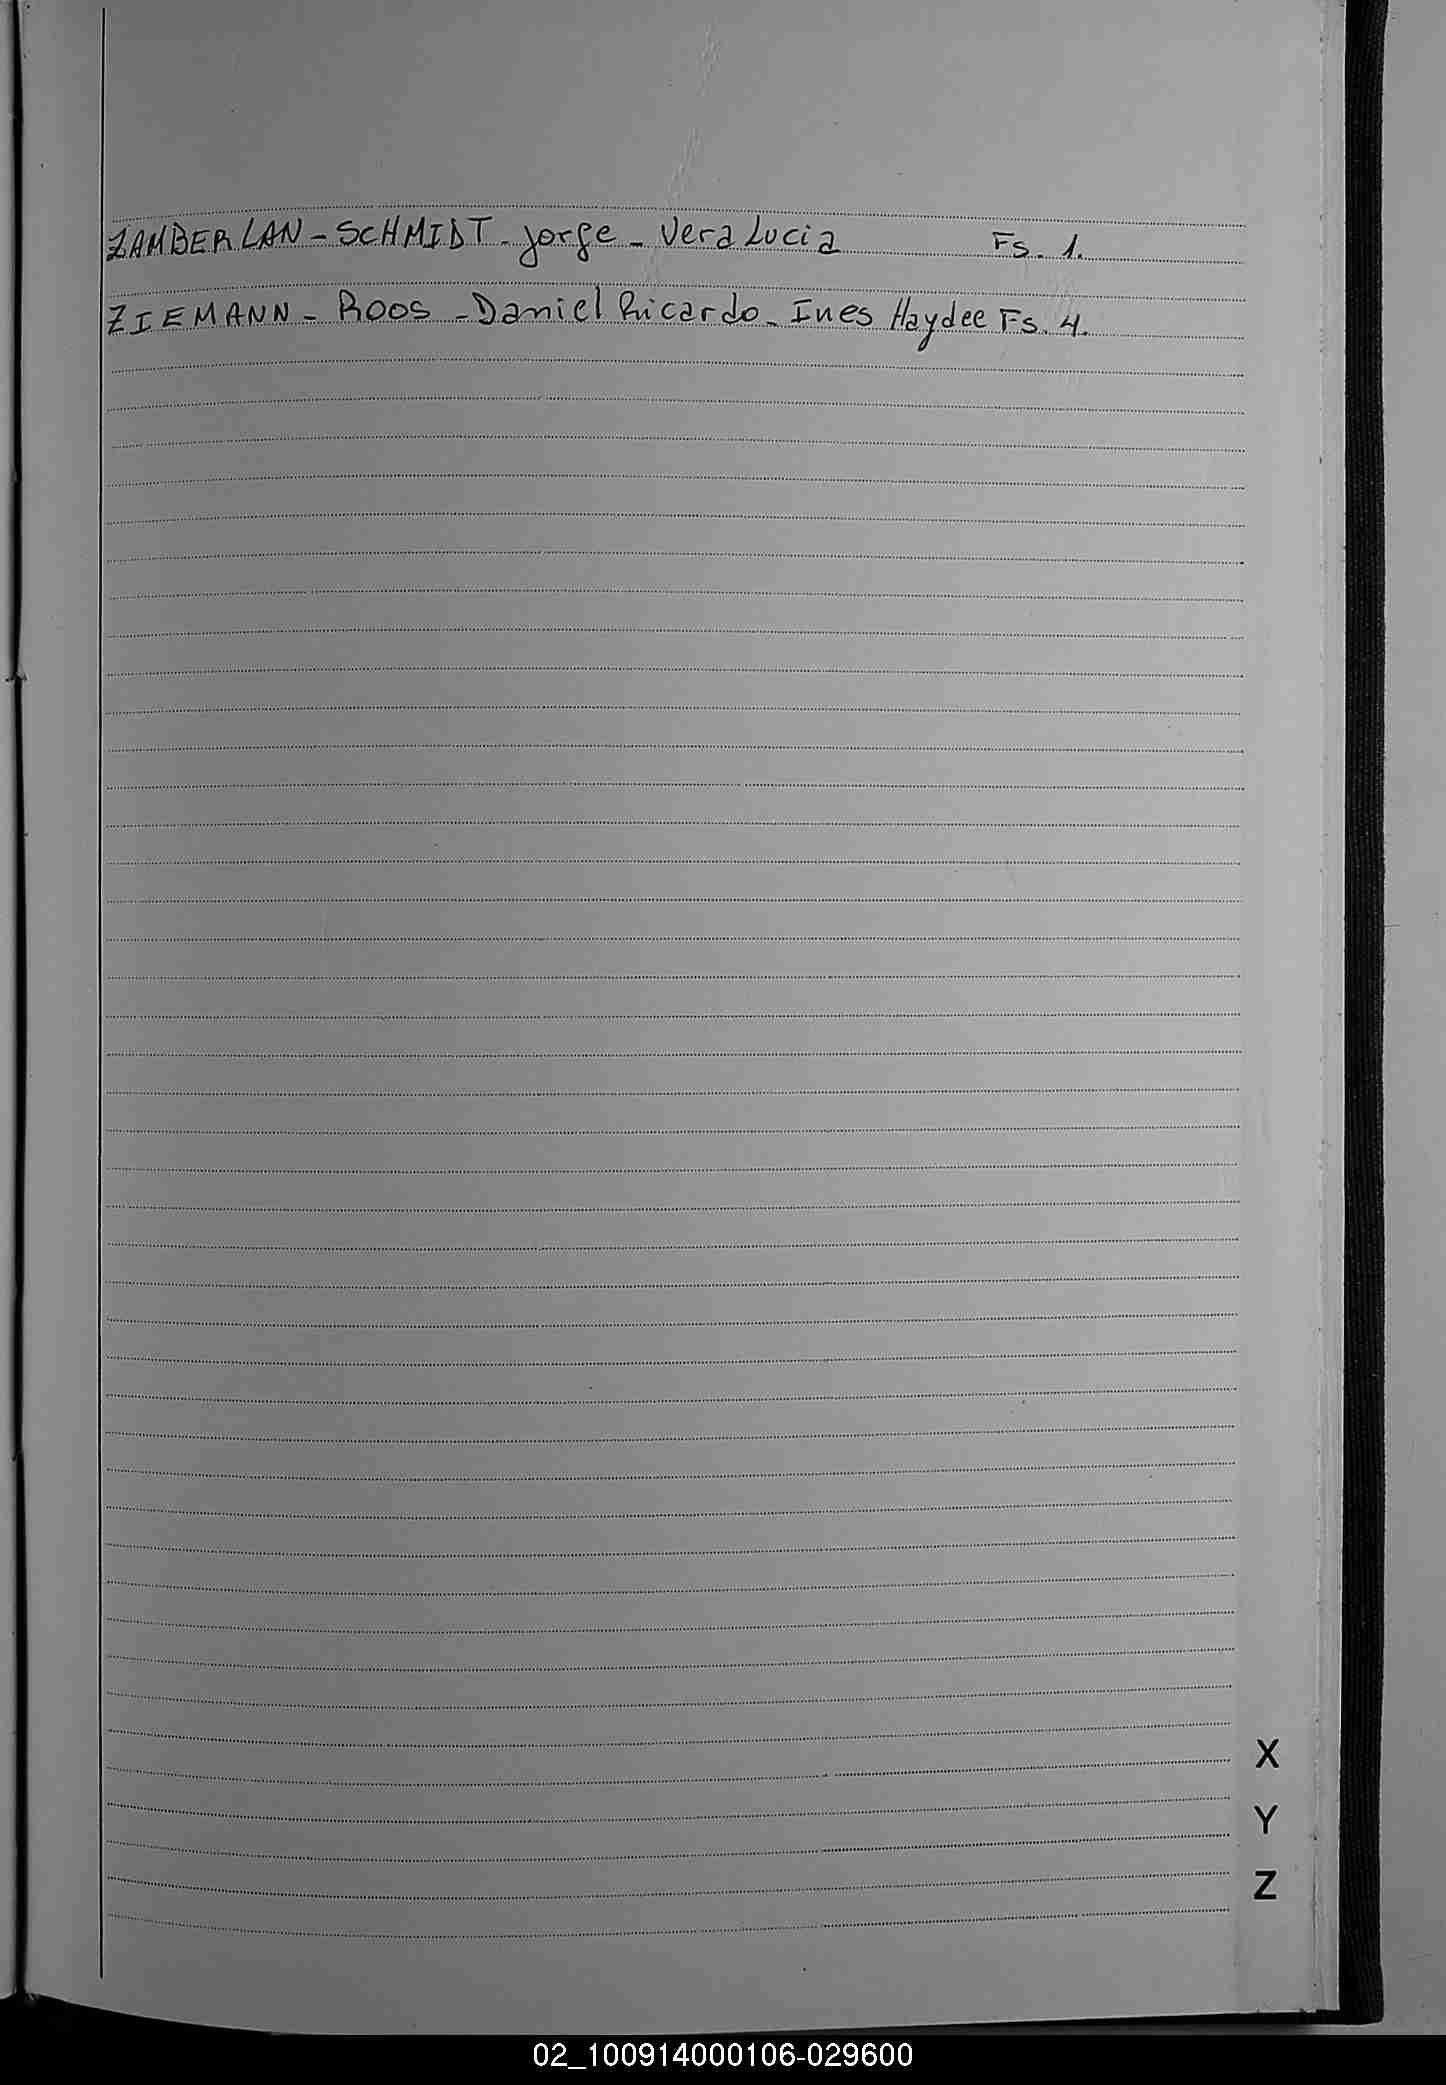 ZAMBERLAN - SCHMIDT - Jorge - Vera Lucia Fs. 1.
ZIEMANN - ROOS - Daniel Ricardo - Ines Haydee Fs. 4.
X
Y
Z
02_100914000106-029600